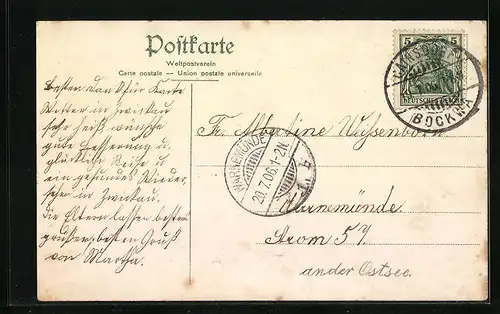 Postkarte
Weltpostverein
Carte postale — Union postale universelle
besten Dank für Karte
Wetter in Zwickau
sehr heiß wünsche
gute Besserung u.
glückliche Reise u
ein gesundes Wieder,
sehn in Zwickau.
die Eltern lassen bestens
grüßen, besten Gruß
von Martha.
5 5
DEUTSCHES REICH
BOCKWA
Fr. Albertine
WARNEMÜNDE
20.7.06.1-2N.
Warnemünde.
Strom 57
an der Ostsee.